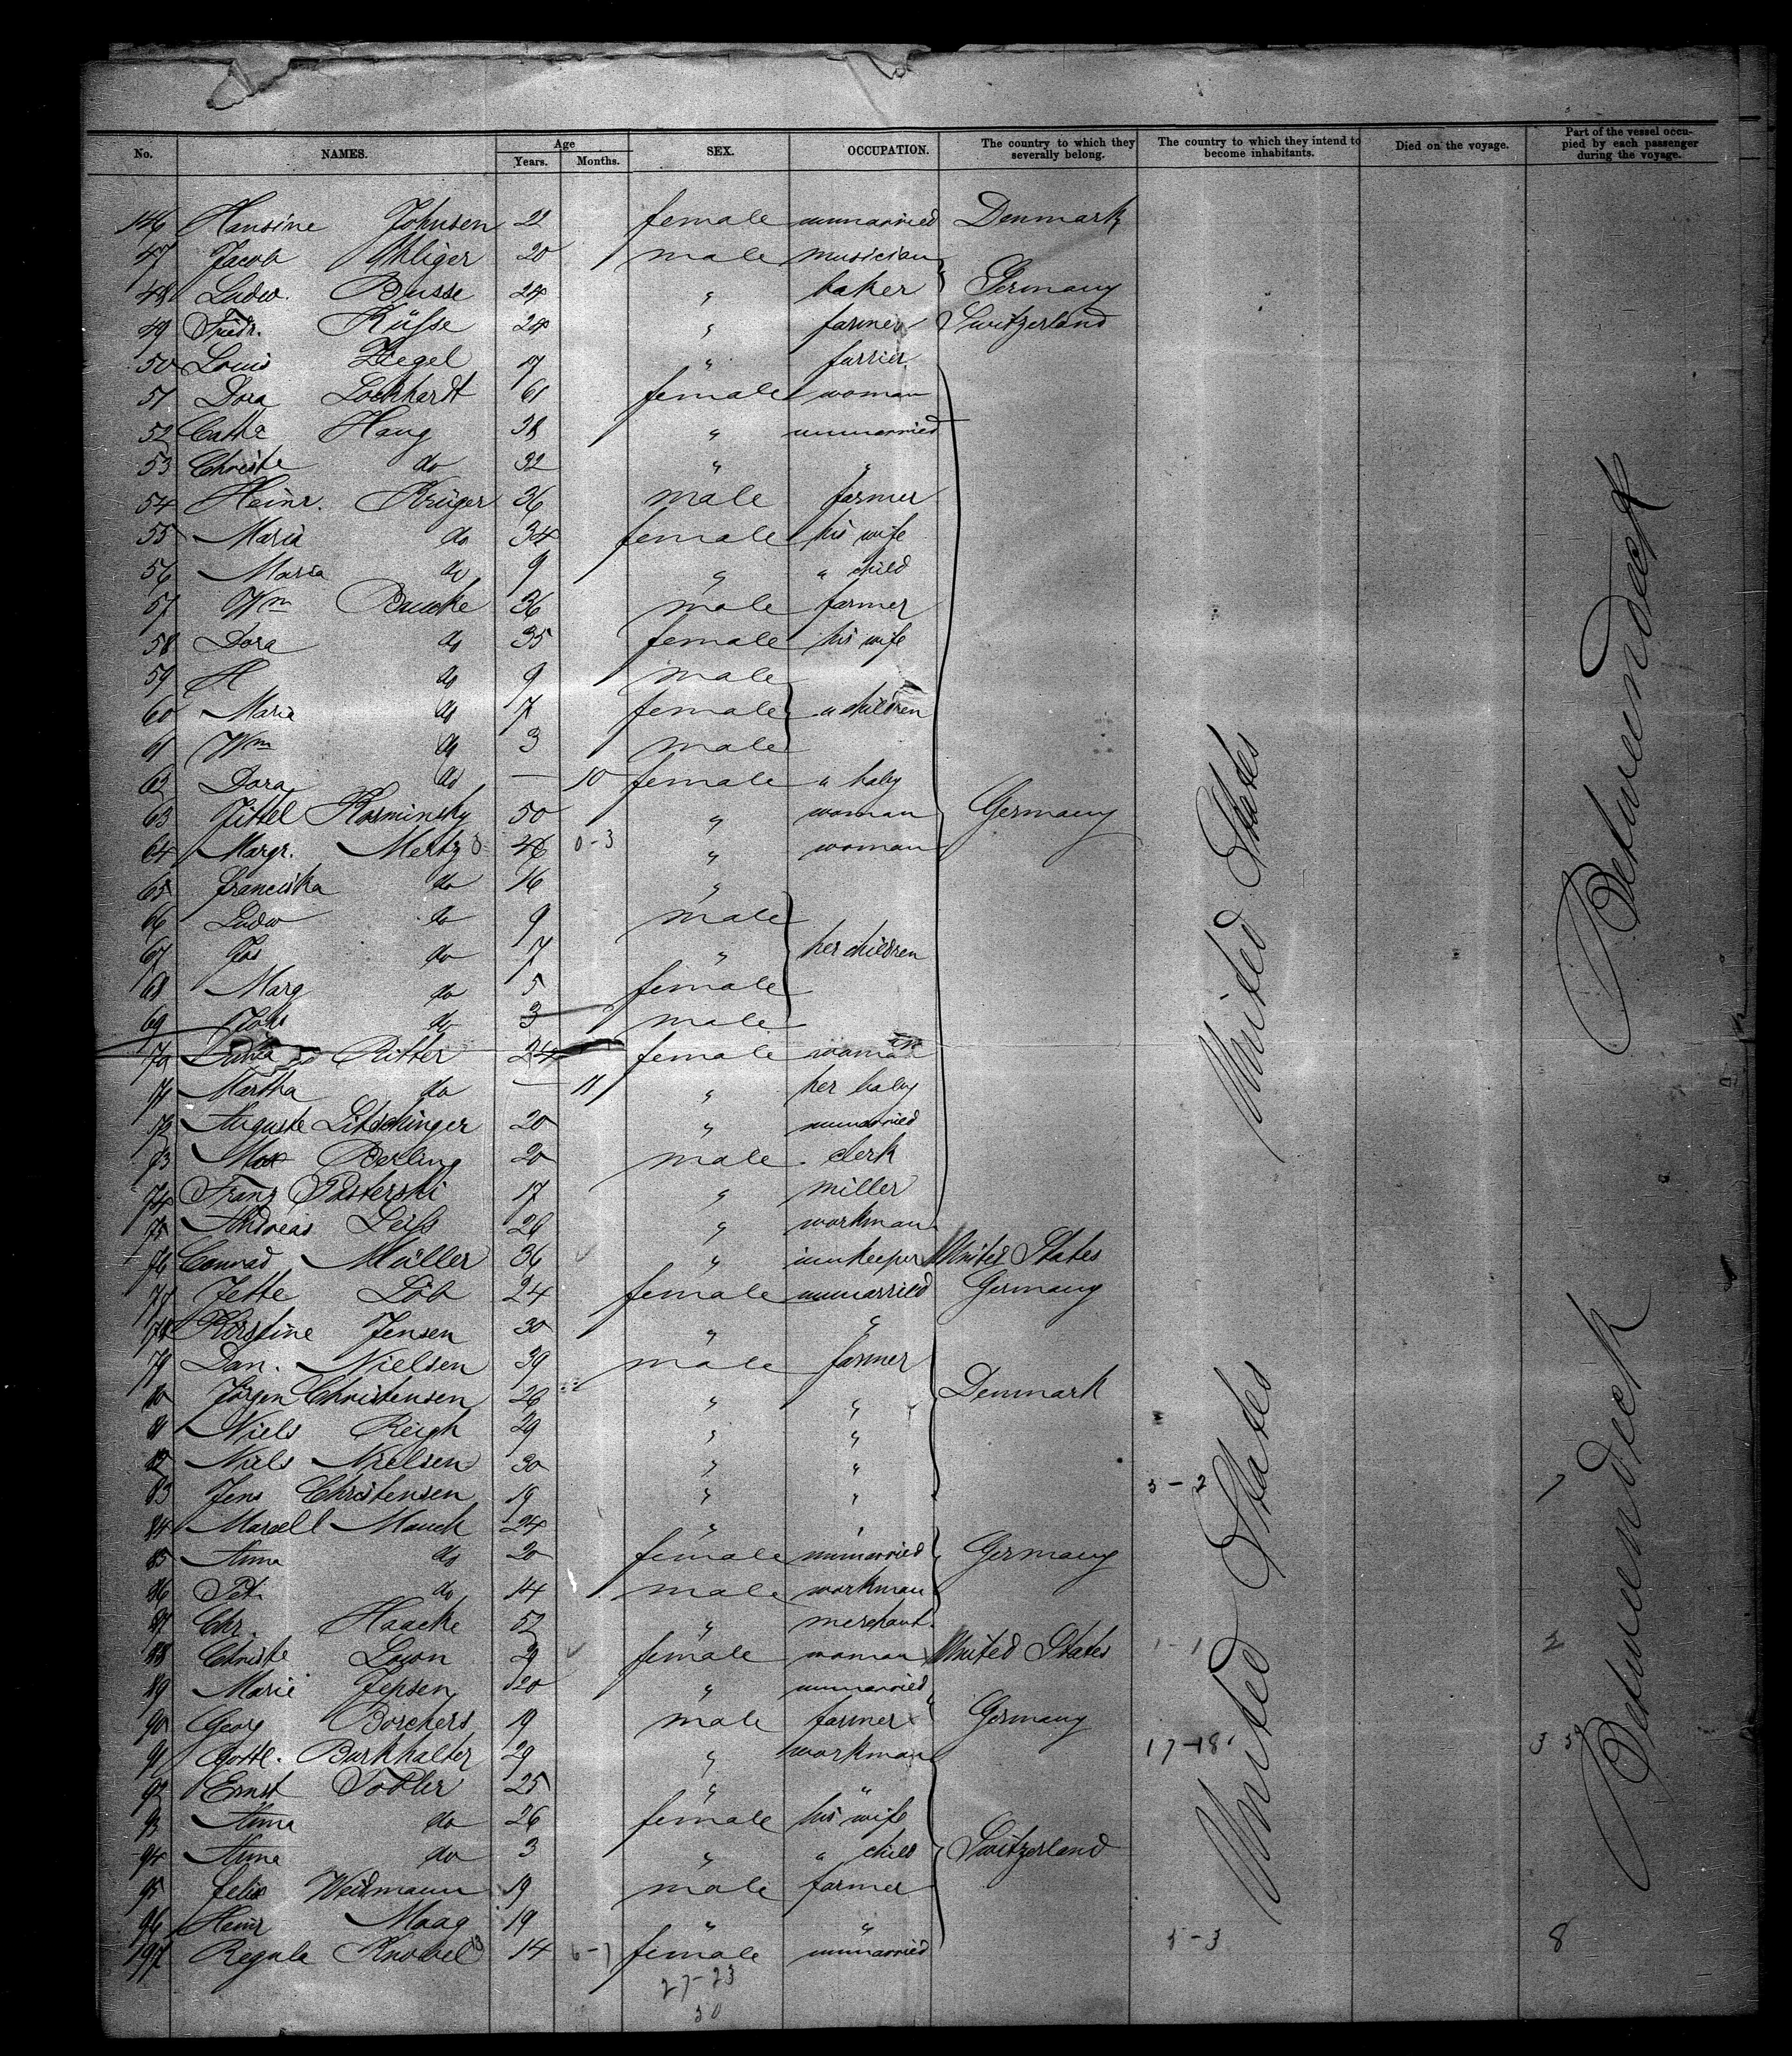 No. NAMES. Age Years. Months. SEX. OCCUPATION. The country to which they severally belong. The country to which they intend to become inhabitants. Died on the voyage. Part of the vessel occupied by each passenger during the voyage.
146 Hansine Johnsen 22 female unmarried Denmark
47 Jacob Uhliger 20 male musician
48 Ludw. Busse 24 " baker Germany
49 Friedr. 24 " farmer Switzerland
50 Louis Ziegel 17 " farrier
51 Dora Lockhardt 61 female woman
52 Cathe Haug 38 " unmarried
53 Christe do 32 " "
54 Heinr. Krüger 36 male farmer
55 Maria do 34 female his wife
56 Maria do 9 " " child
57 Wm Baucke 36 male farmer
58 Dora do 35 female his wife
59 H do 9 male
60 Maria do 7 female " children
61 Wm do 3 male
62 Dora do — 10 female " baby
63 Jittel Kosminsky 50 " woman Germany
64 Margr. Mertz 46 0-3 " woman
65 Franciska do 16 "
66 Ludw do 9 male
67 Jos do 7 " her children
68 Marg do 5 female
69 Johs do 3 male
70 Ritter 24 female woman
71 Martha do — 11 " her baby
72 Auguste Litschinger 20 " unmarried
73 Max Berling 20 male clerk
74 Franz 17 " miller
75 Andreas Leiss 26 " workman
76 Conrad Müller 36 " innkeeper United States
77 Jette Löb 24 female unmarried Germany
178 Kirstine Jensen 30 " "
79 Dan. Nielsen 39 male farmer
80 Jörgen Christensen 26 " " Denmark
81 Niels Reigh 29 " "
82 Niels Nielsen 30 " "
83 Jens Christensen 19 " " 5-2
84 Marsell Mauch 24 " "
85 Anna do 20 female unmarried Germany
86 Pet. do 14 male workman
87 Chr. Haacke 52 " merchant
88 Christe Loron 29 female woman United States 1-1 2
89 Marie Jepsen 20 " unmarried
90 Georg Borchers 19 male farmer Germany
91 Gottl. Burkhalter 29 " workman 17-18
92 Ernst Tobler 25 " "
93 Anna do 26 female his wife
94 Anna do 3 " " child Switzerland
95 Felix Weidmann 19 male farmer
96 Heinr Maag 19 " "
197 Regula Knobel 14 6-7 female unmarried 5-3 8
27-23
50
United States
United States
Betweendeck
Betweendeck